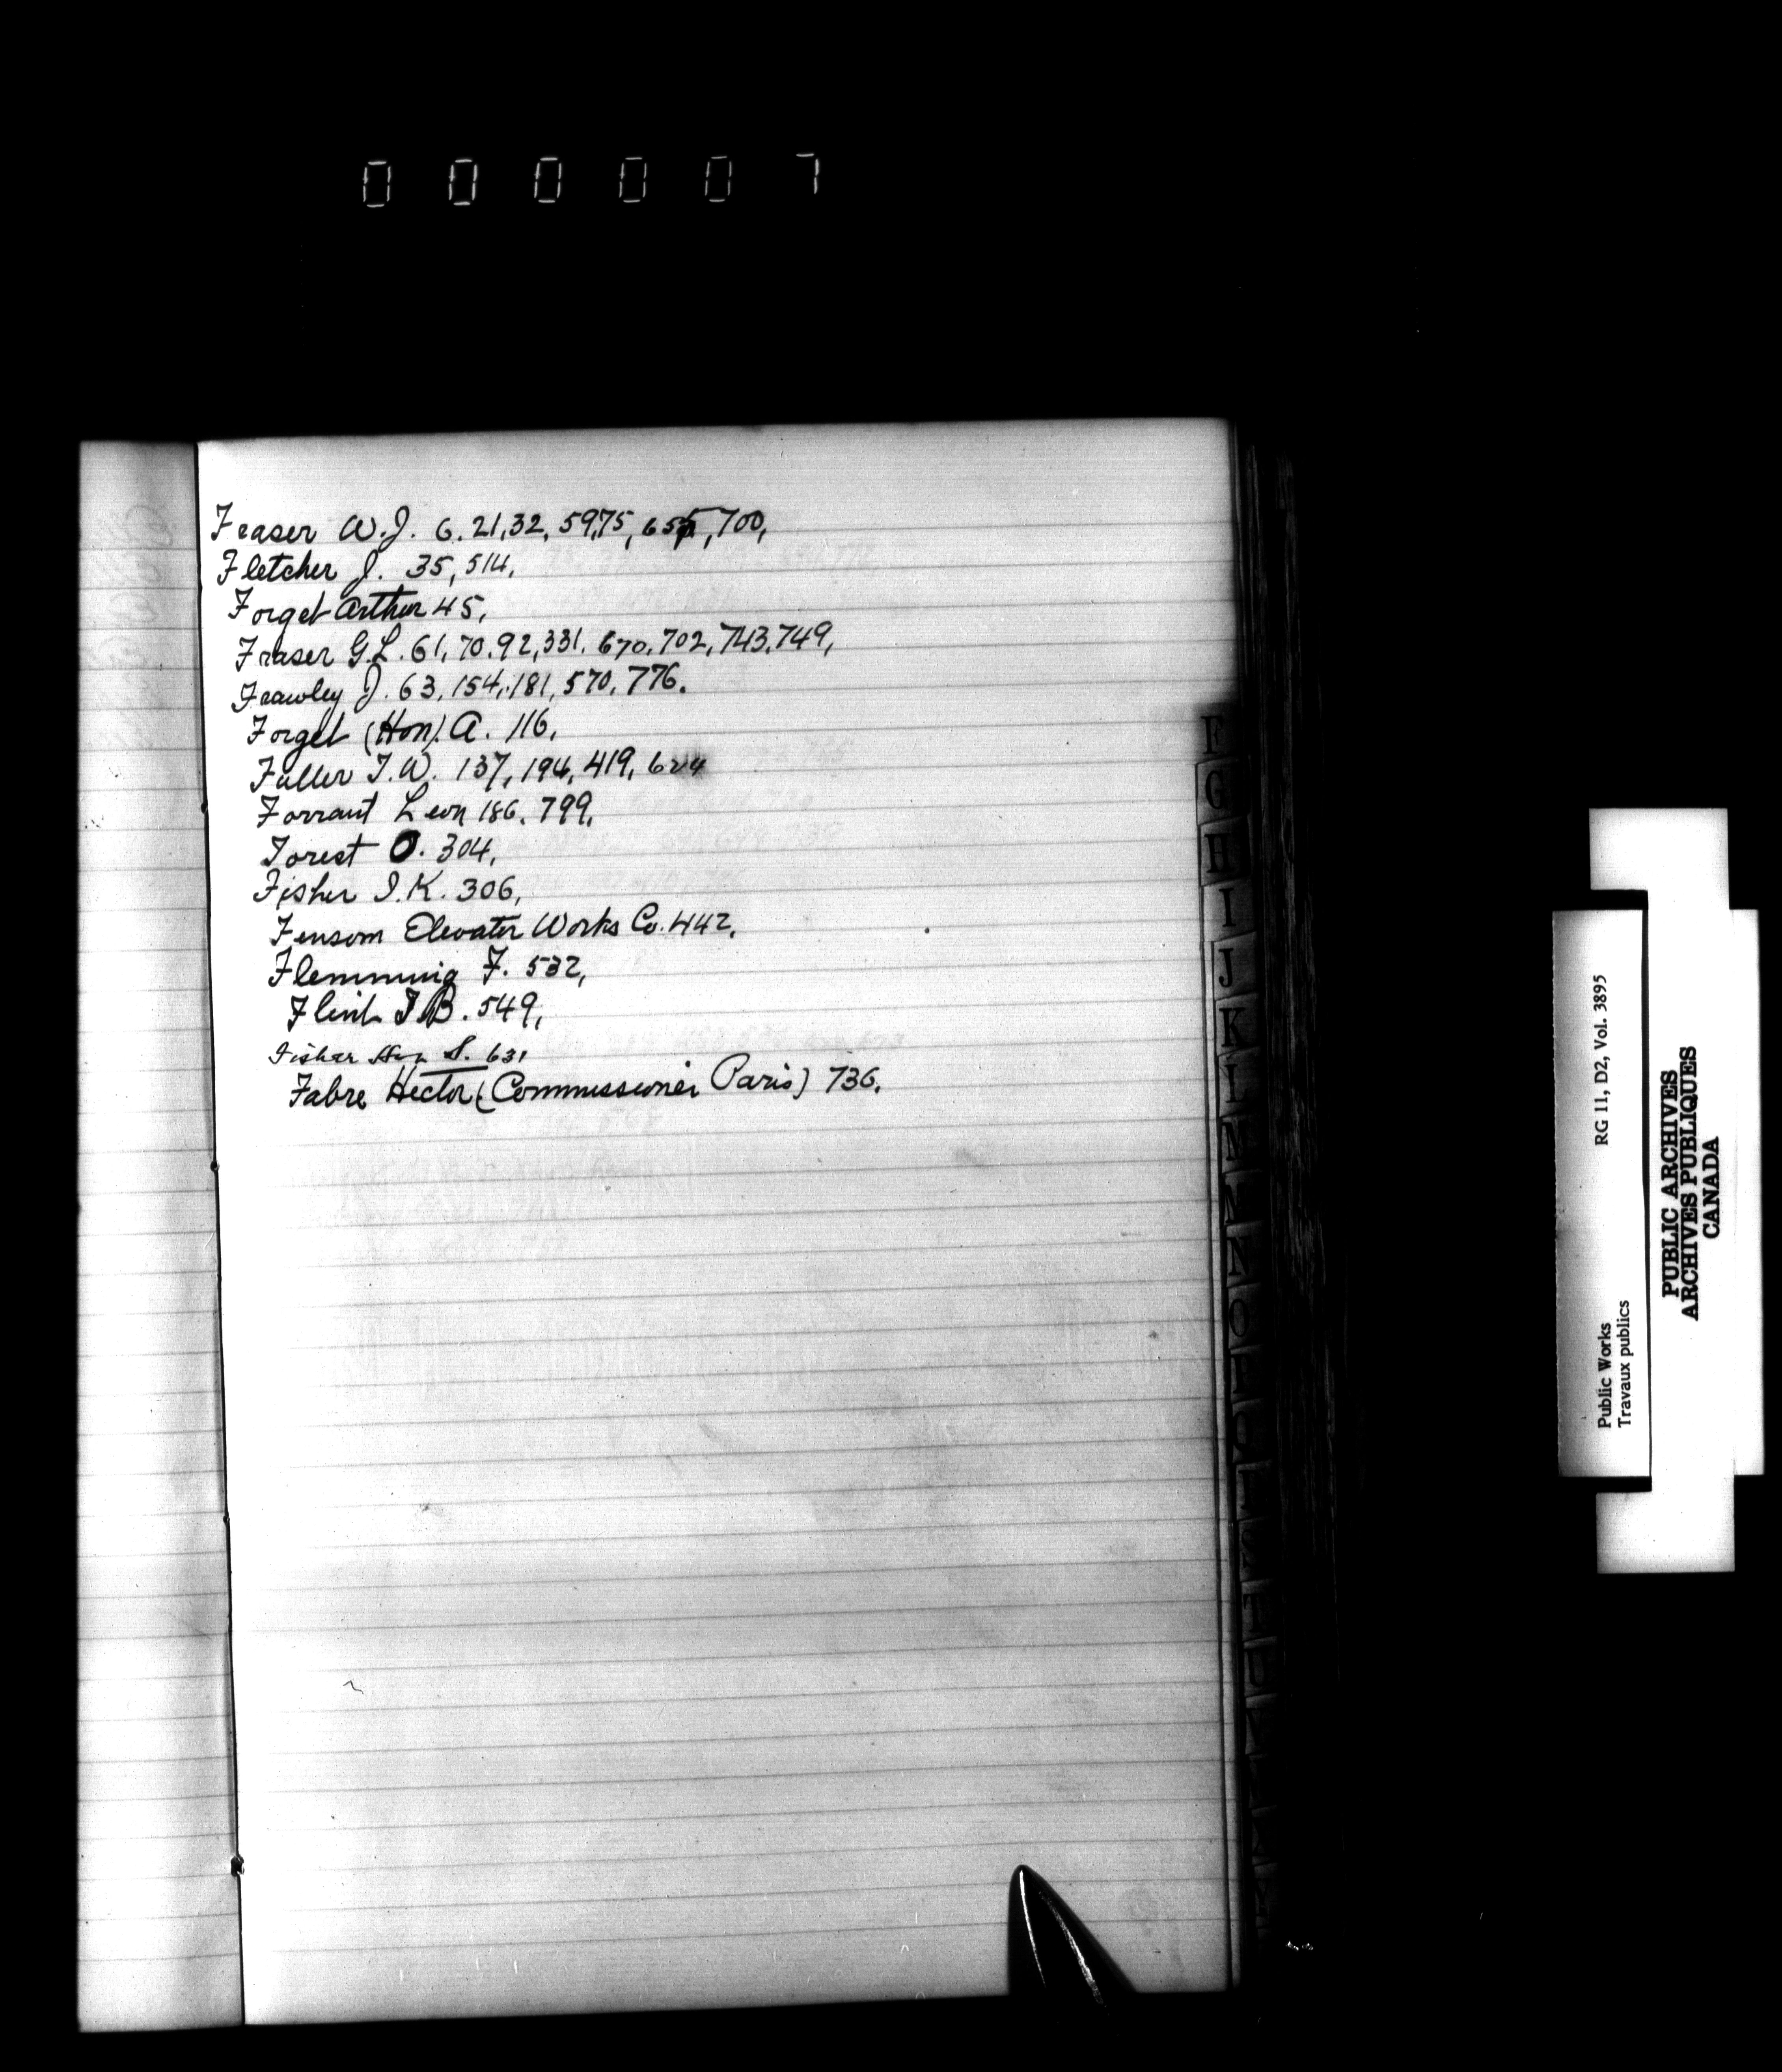 000007
Fraser W.J. 6. 21, 32, 59, 75, 700,
Fletcher J. 35, 514,
Forget Arthur 45,
Fraser G.L. 61, 70. 92, 331. 670. 702, 743, 749,
Frawley J. 63, 154, 181, 570, 776.
Forget (Hon). A. 116,
Fuller T.W. 137, 194, 419,
Forrant Leon 186. 799,
Forest O. 304,
Fisher I.K. 306,
Fensom Elevator Works Co. 442,
Flemming F. 532,
Flint T.B. 549,
Fisher Hon S. 631
Fabre Hector (Commissioner Paris) 736.
F
G
H
I
J
K
N
O
Public Works
Travaux publics
RG 11, D2, Vol. 3895
PUBLIC ARCHIVES
ARCHIVES PUBLIQUES
CANADA